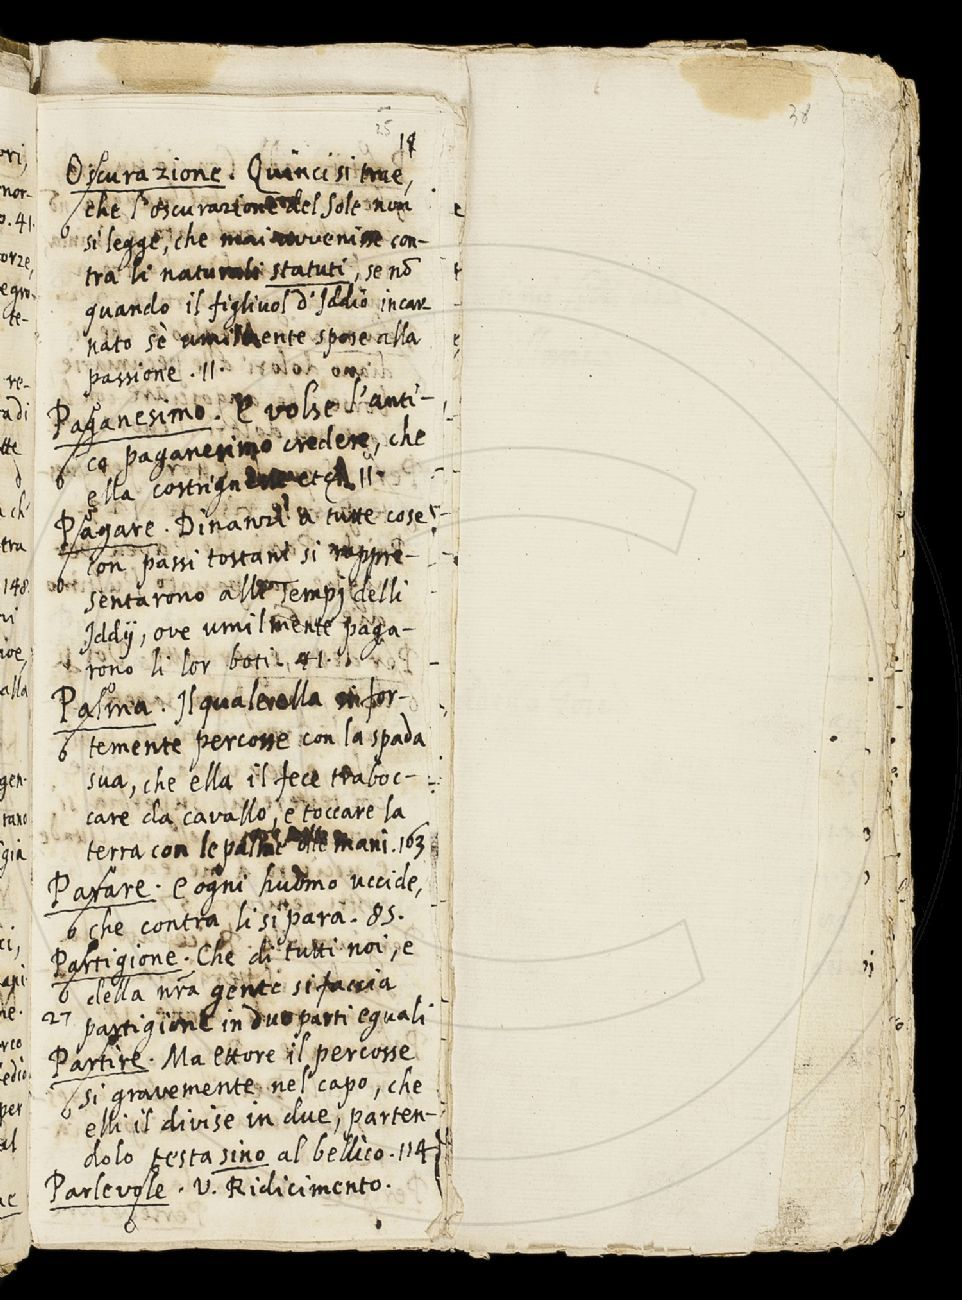 25
18
38
Oscurazione. Quinci si true,
che l'oscurazione del Sole non
si legge, che mai avvenisse con-
tra li naturali statuti, se nō
quando il figliuol d'Iddio incar-
nato sè umilmente spose alla
passione. 11.
Paganesimo. E volse l'anti-
co paganesimo credere, che
ella costrign 11.
Pagare. Dinanzi a tutte cose
con passi tostani si rappre-
sentarono alle Tempj delli
Iddij, ove umilmente paga-
rono li lor boti. 41.
Palma. Il quale ella sì for-
temente percosse con la spada
sua, che ella il fece traboc-
care da cavallo, e toccare la
terra con le palme delle mani. 163
Parare. E ogni huomo uccide,
che contra li si para. 85.
Partigione. Che di tutti noi, e
della nr̃a gente si faccia
27 partigione in duo parti eguali
Partire. Ma Ettore il percosse
si gravemente nel capo, che
elli il divise in due, parten-
dolo testa sino al bellico. 114
Parlevole. V. Ridicimento.